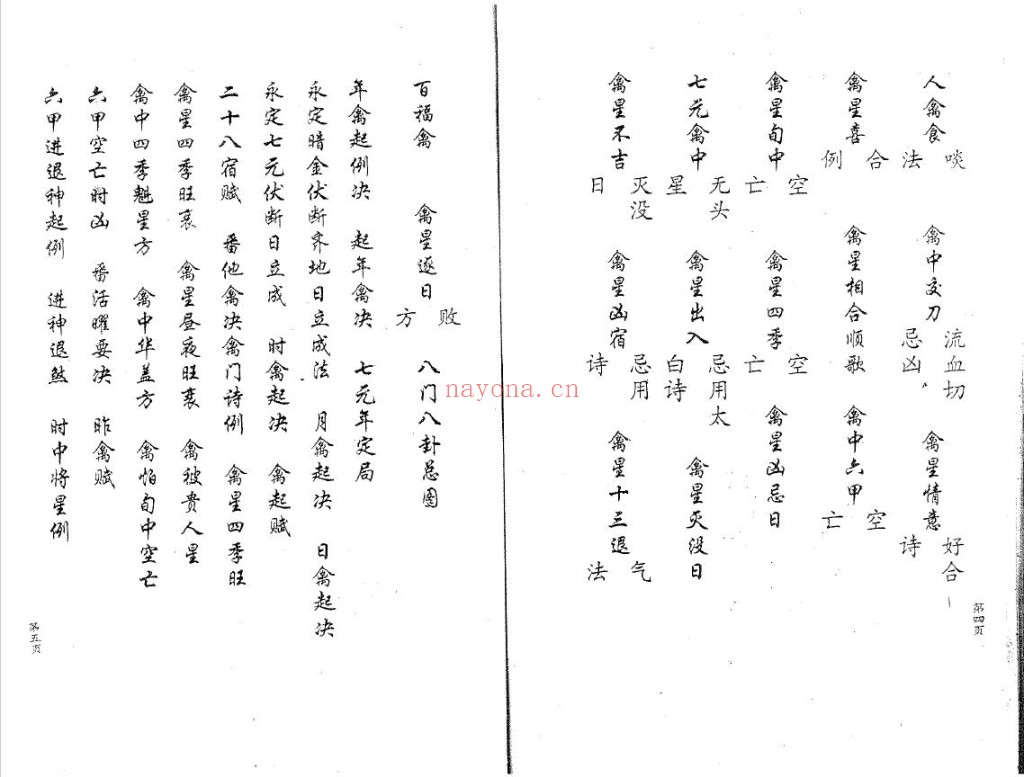 人禽食啖法 禽中交刀流血切忌凶 禽星情意好合诗
禽星喜合例 禽星相合顺歌 禽中六甲空亡
禽星旬中空亡 禽星四季空亡 禽星凶忌日
七元禽中无头星 禽星出入忌用太白诗 禽星灭没日
禽星不吉灭没日 禽星凶宿忌用诗 禽星十三退气法
第四页
百福禽 禽星逐日败方 八门八卦总图
年禽起例决 起年禽决 七元年定局
永定暗金伏断齐地日立成法 月禽起决 日禽起决
永定七元伏断日立成 时禽起决 禽起赋
二十八宿赋 番他禽决禽门诗例 禽星四季旺
禽星四季旺衰 禽星昼夜旺衰 禽被贵人星
禽中四季魁星方 禽中华盖方 禽怕旬中空亡
六甲空亡时凶 番活曜要决 昨禽赋
六甲进退神起例 进神退煞 时中将星例
第五页
nayona.cn